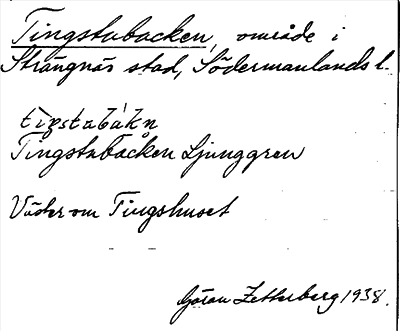 Tingstubacken, område i
Strängnäs stad, Södermanlands l.
tiŋstubákn
Tingstubacken Ljunggren
Väster om Tingshuset
Göran Zetterberg 1938.